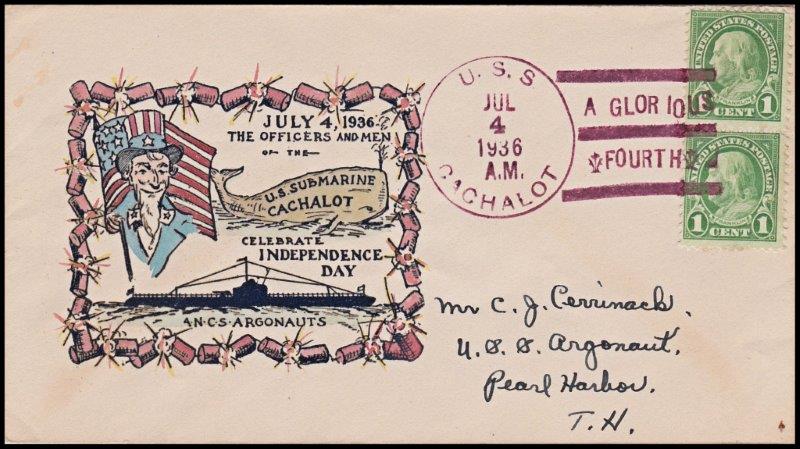 JULY 4, 1936
THE OFFICERS AND MEN
OF THE
U.S. SUBMARINE
CACHALOT
CELEBRATE
INDEPENDENCE
DAY
A.N.C.S. ARGONAUTS
U. S. S
JUL
4
1936
A.M.
CACHALOT
A GLORIOUS
FOURTH
UNITED STATES POSTAGE
FRANKLIN
1 CENT 1
UNITED STATES POSTAGE
FRANKLIN
1 CENT 1
Mr C. J.
U. S. S. Argonaut,
Pearl Harbor.
T. H.